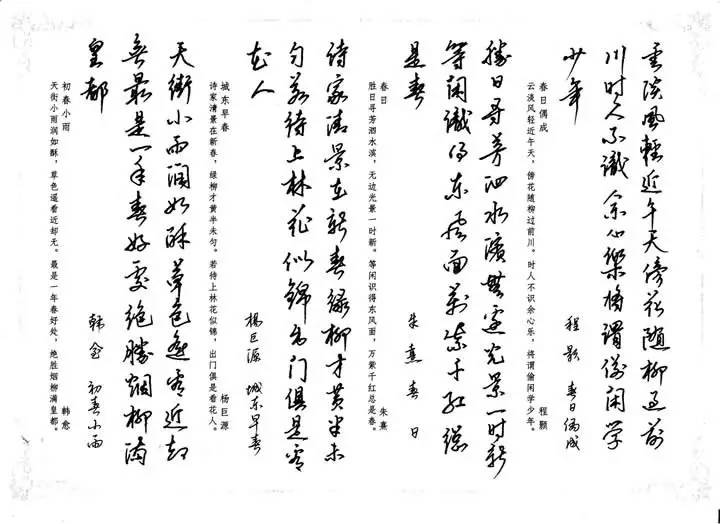 雲淡風輕近午天傍花随柳過前
川时人不識余心樂将謂偷閑学
少年
程颢 春日偶成
春日偶成 程颢
云淡风轻近午天，傍花随柳过前川。时人不识余心乐，将谓偷闲学少年。
勝日寻芳泗水濱無邊光景一时新
等闲識得东风面萬紫千红總
是春
朱熹 春日
春日 朱熹
胜日寻芳泗水滨，无边光景一时新。等闲识得东风面，万紫千红总是春。
诗家清景在新春绿柳才黄半未
匀若待上林花似锦出门俱是看
花人
杨巨源 城东早春
城东早春 杨巨源
诗家清景在新春，绿柳才黄半未匀。若待上林花似锦，出门俱是看花人。
天街小雨润如酥草色遥看近却
無最是一年春好处绝勝烟柳满
皇都
韩愈 初春小雨
初春小雨 韩愈
天街小雨润如酥，草色遥看近却无。最是一年春好处，绝胜烟柳满皇都。